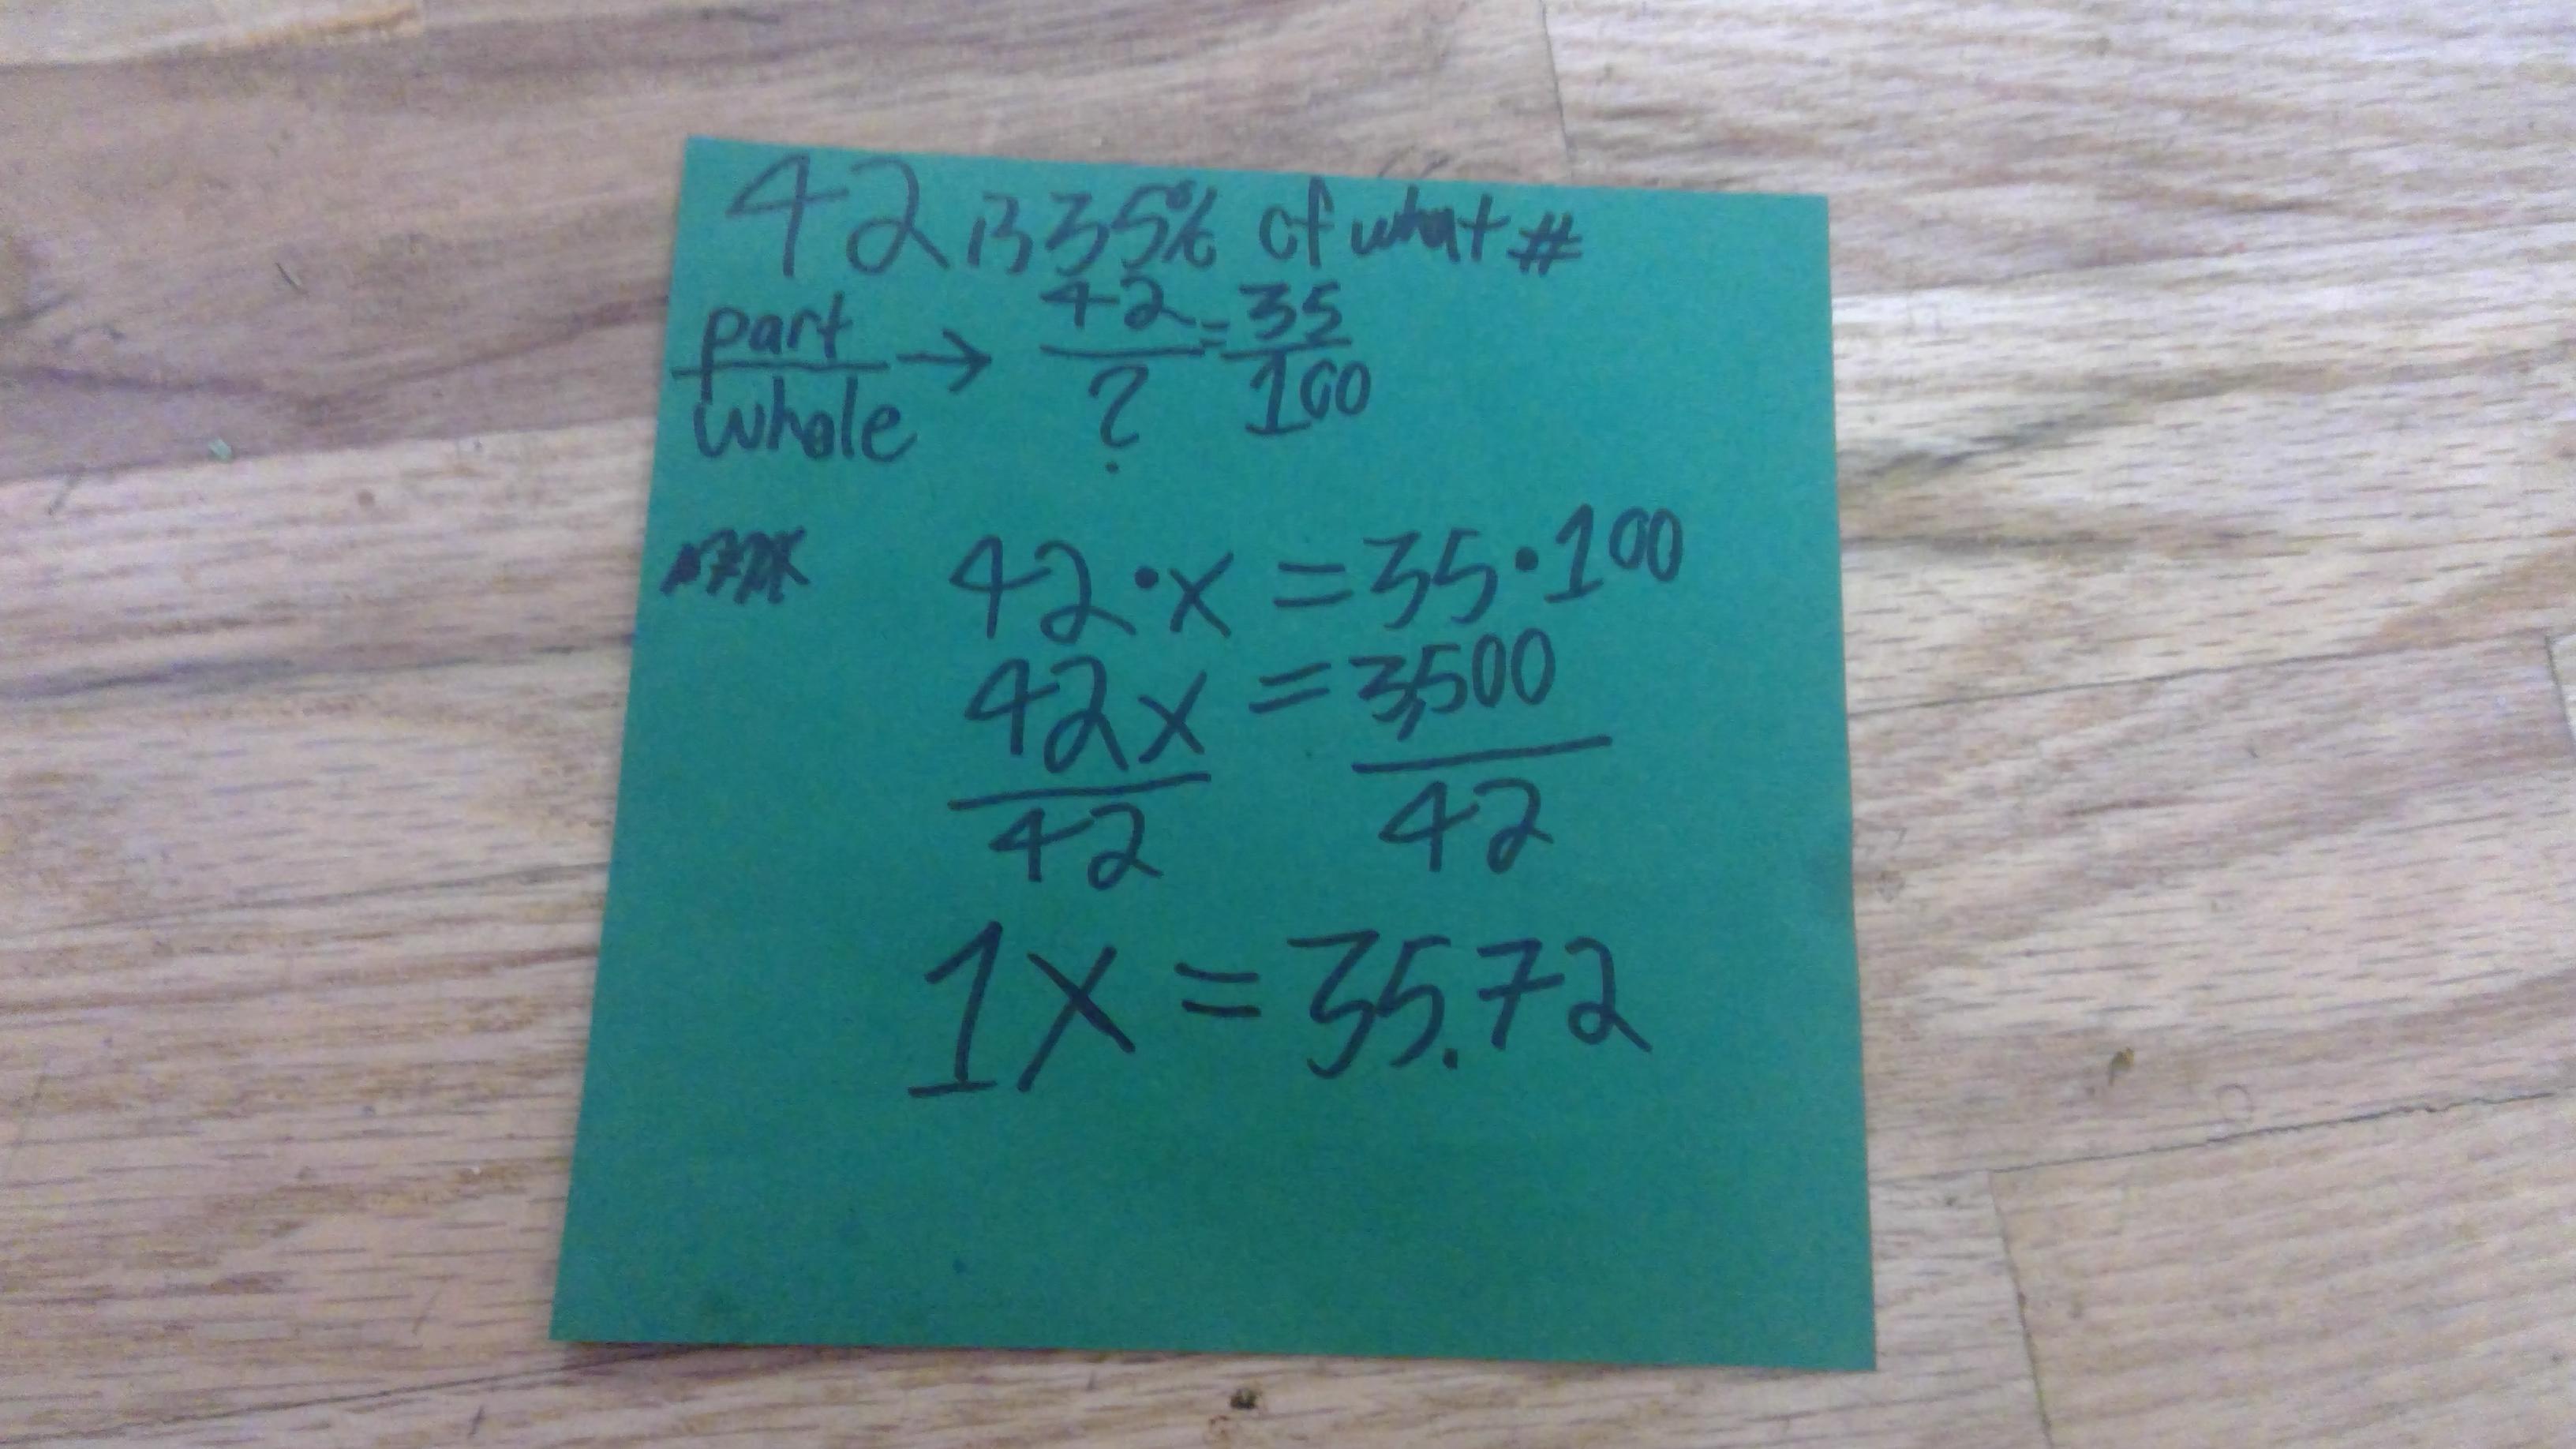 42 is 35% of what #
part/whole → 42/? = 35/100
42 • x = 35 • 100
42x/42 = 3,500/42
1x = 35.72